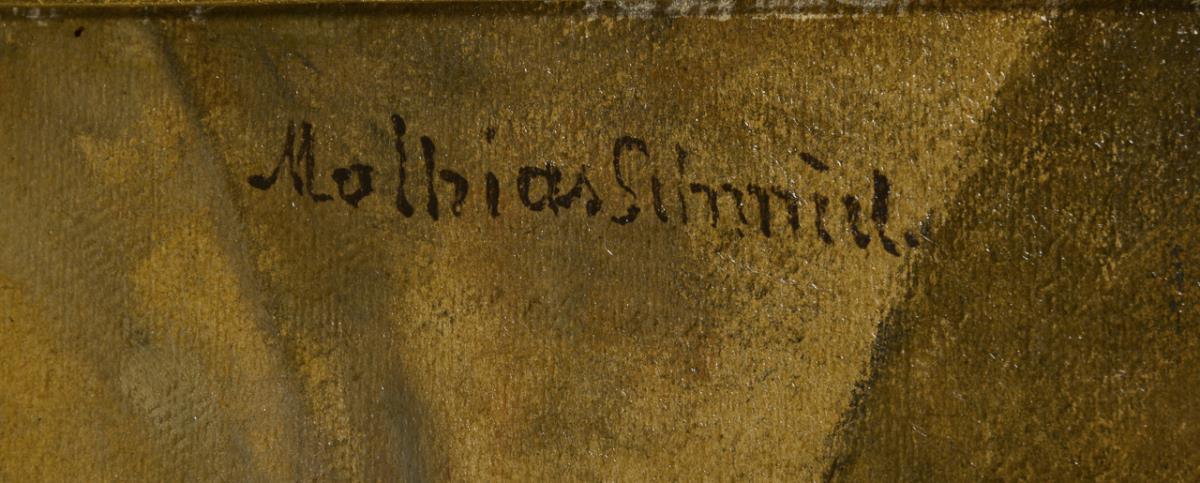 Mathias Schmid.